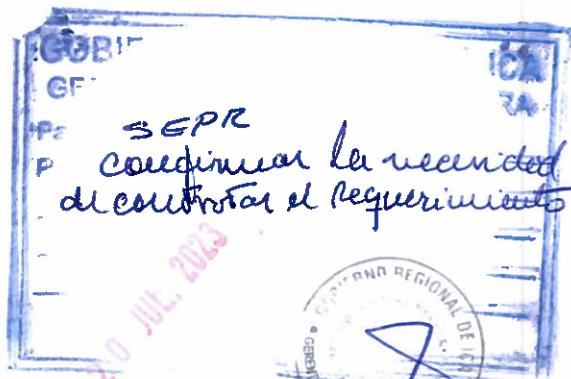 GOBIE
ICA
GE
RA
SEPR
confirmar la necesidad
de contratar el requerimiento
20 JUL. 2023
GOBIERNO REGIONAL DE ICA